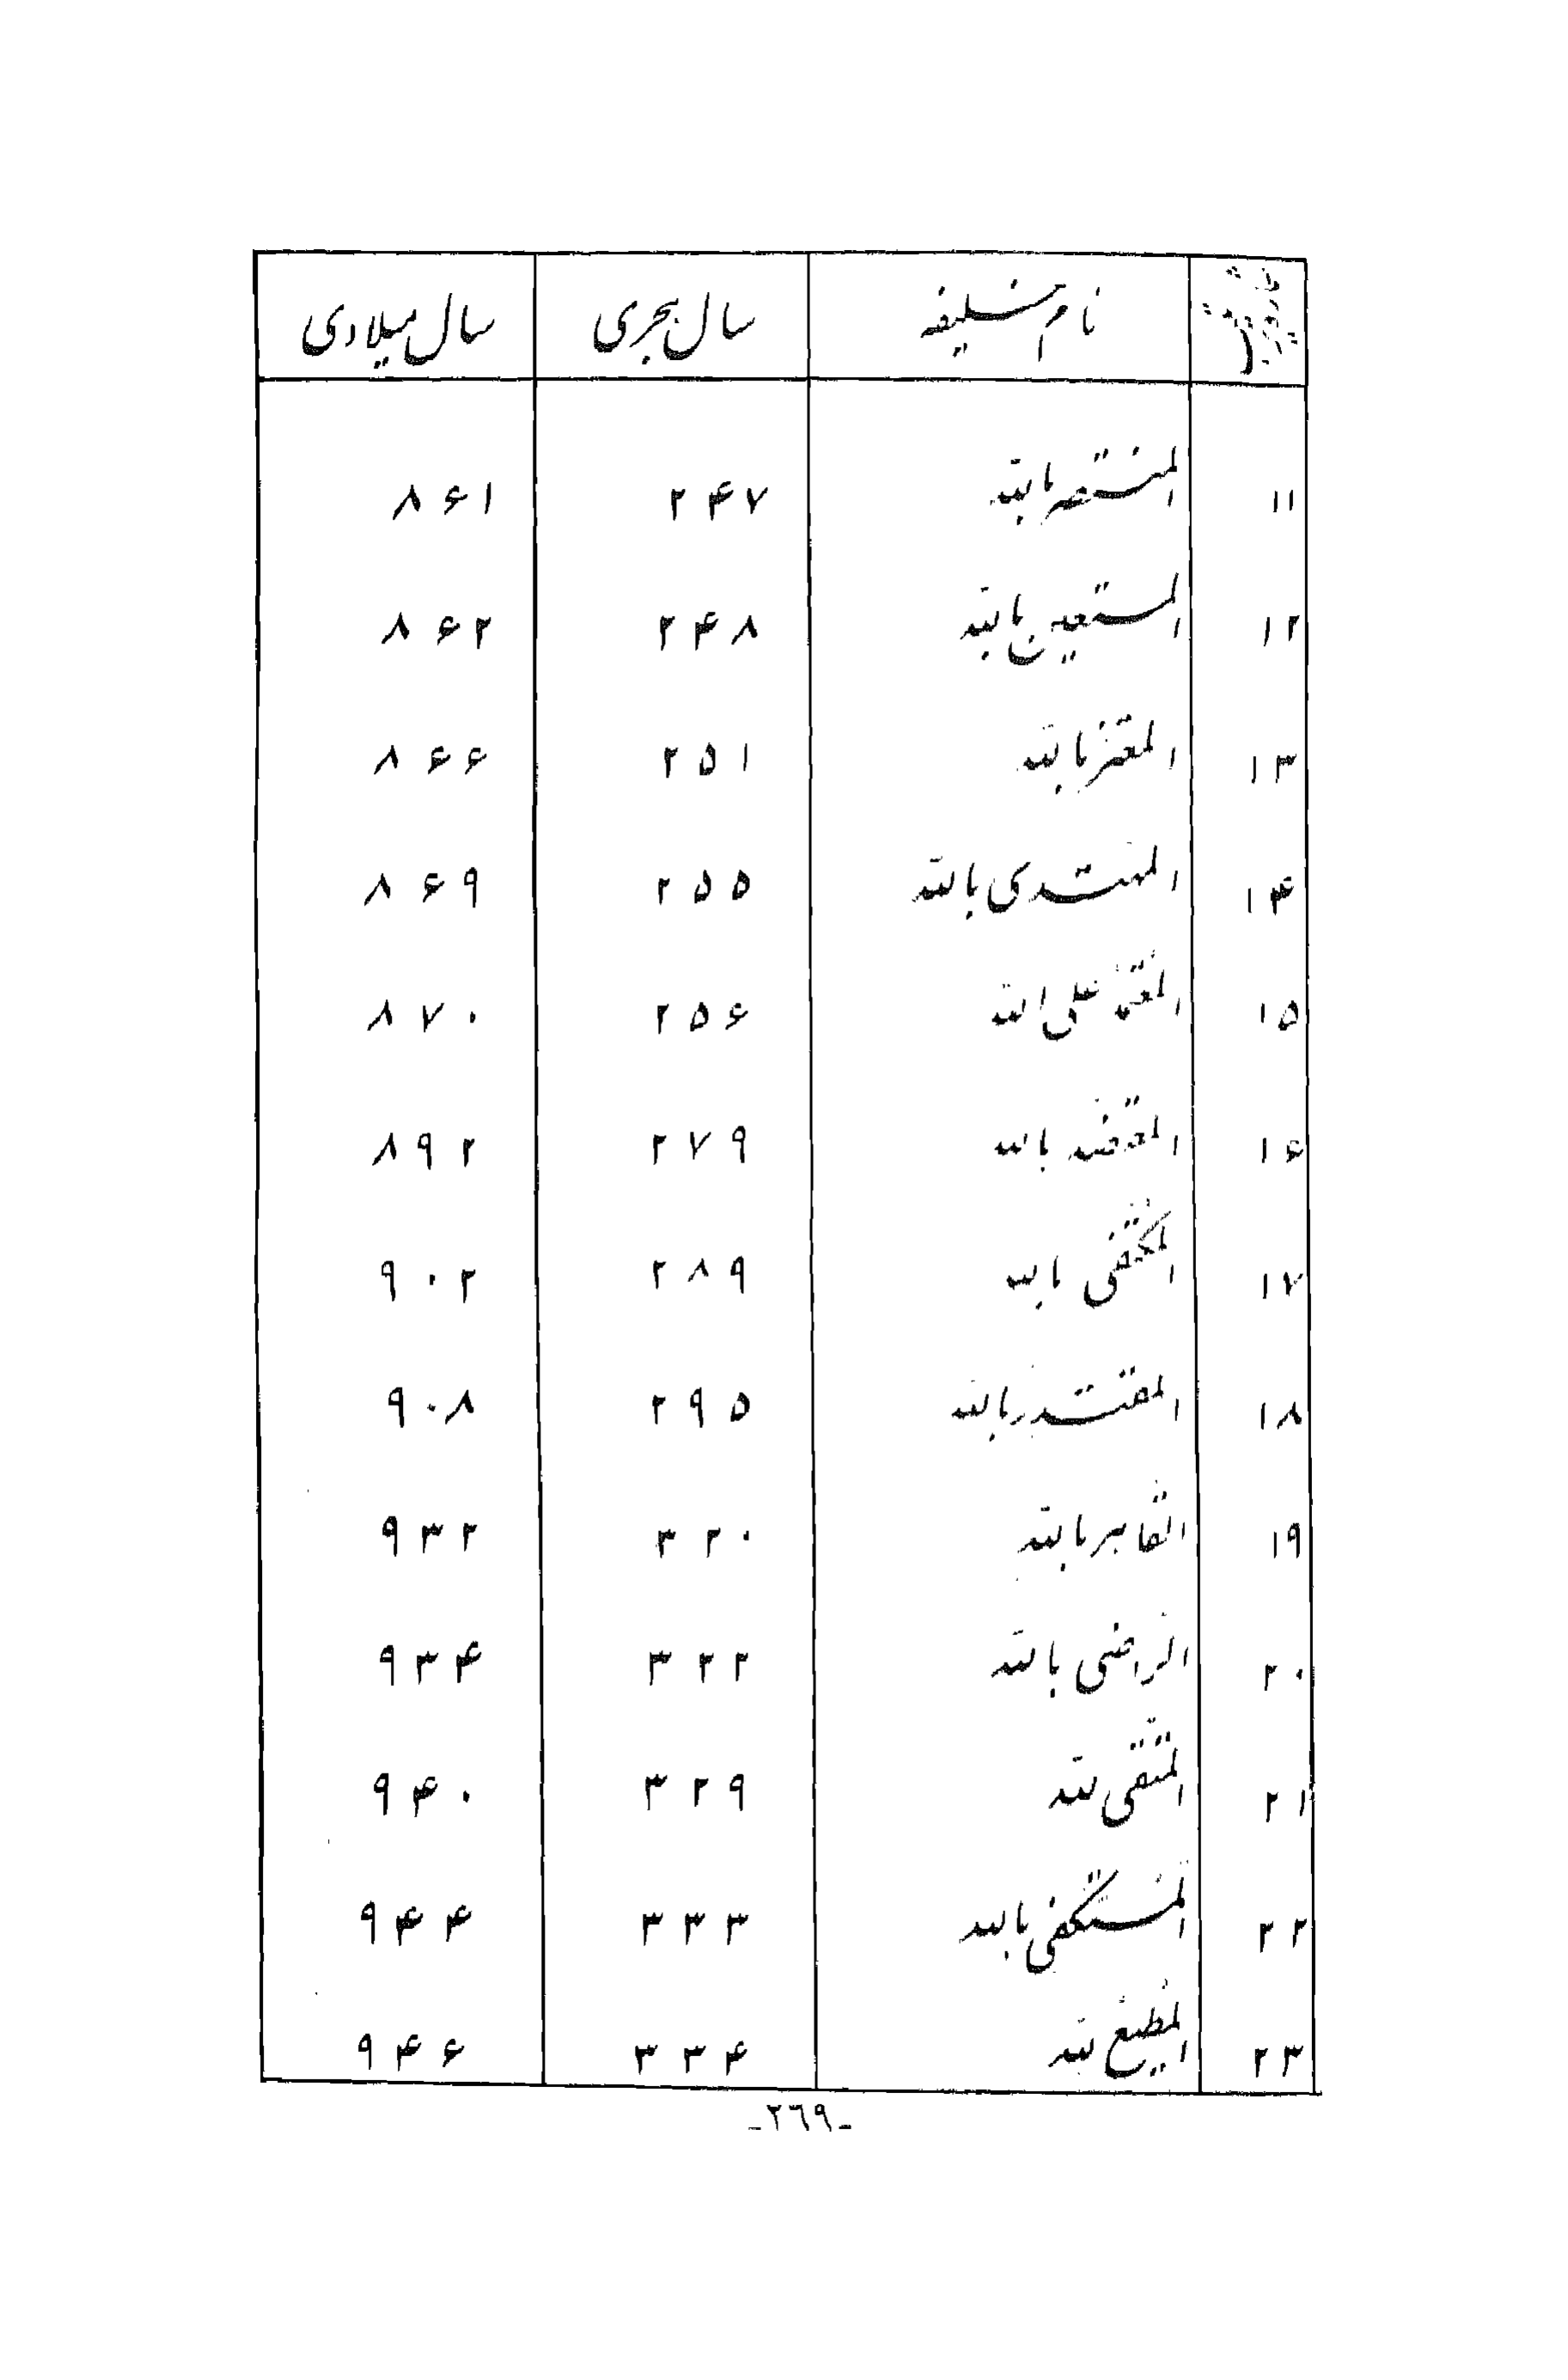 نام خلیفه سال هجری سال میلادی
۱۱ المنتصر بالله ۲۴۷ ۸۶۱
۱۲ المستعین بالله ۲۴۸ ۸۶۲
۱۳ المعتز بالله ۲۵۱ ۸۶۶
۱۴ المهتدی بالله ۲۵۵ ۸۶۹
۱۵ المعتمد علی الله ۲۵۶ ۸۷۰
۱۶ المعتضد بالله ۲۷۹ ۸۹۲
۱۷ المکتفی بالله ۲۸۹ ۹۰۲
۱۸ المقتدر بالله ۲۹۵ ۹۰۸
۱۹ القاهر بالله ۳۲۰ ۹۳۲
۲۰ الراضی بالله ۳۲۲ ۹۳۴
۲۱ المتقی لله ۳۲۹ ۹۴۰
۲۲ المستکفی بالله ۳۳۳ ۹۴۴
۲۳ المطیع لله ۳۳۴ ۹۴۶
-٢٦٩-